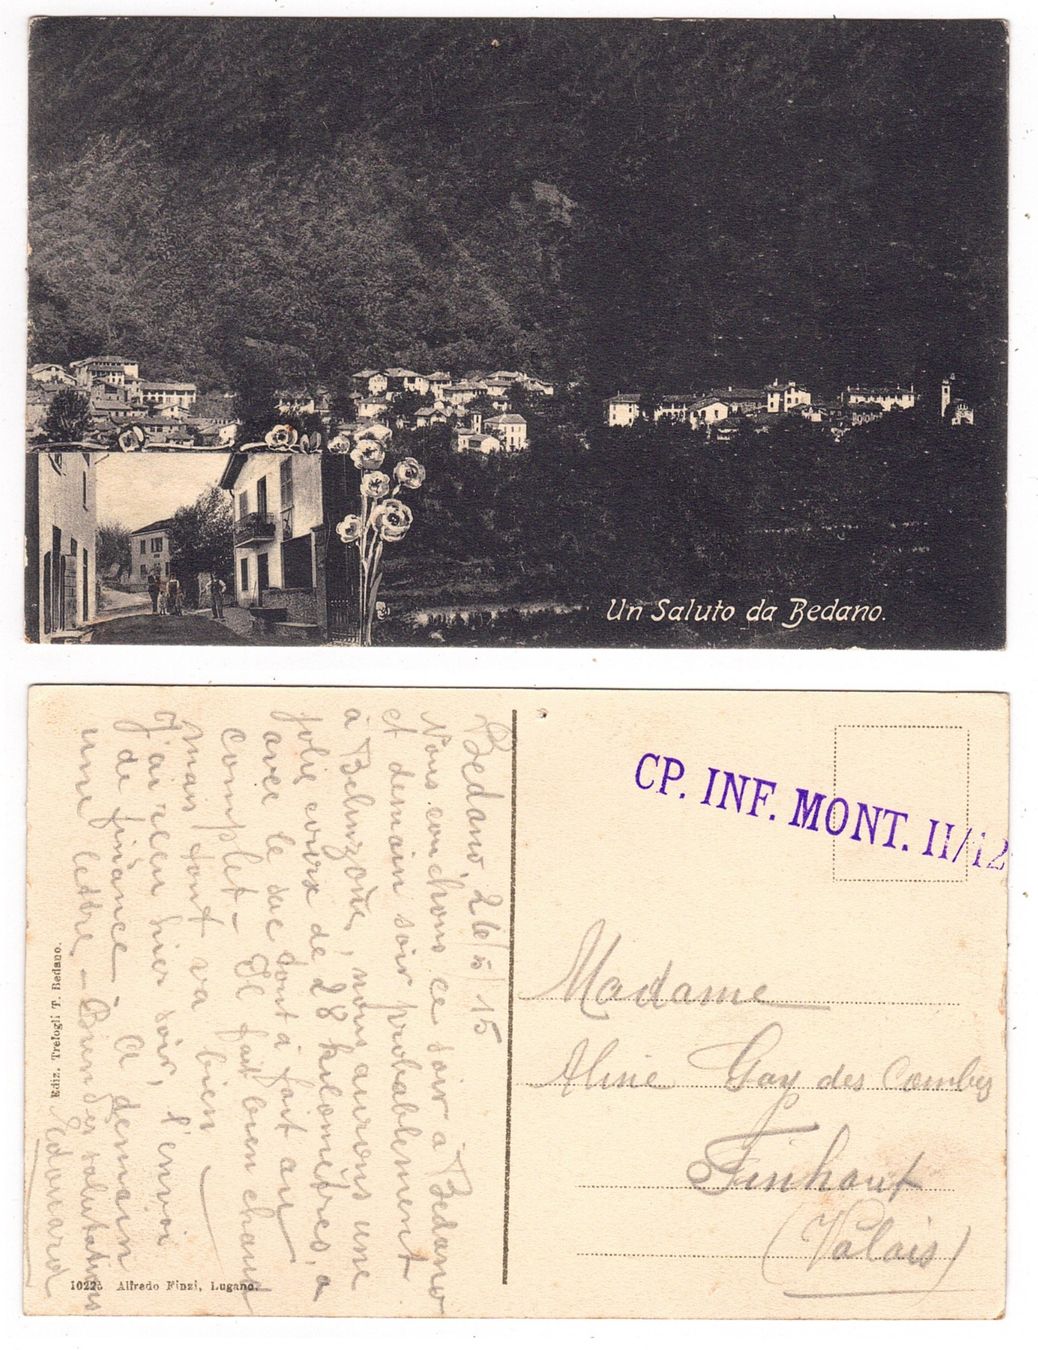 Un Saluto da Bedano.
Bedano, 26/5/15
Nous couchons ce soir à Bedano
et demain soir probablement
à Belinzone, nous aurons une
jolie course de 28 kilomètres,
avec le sac tout à fait au
complet – Il fait bien chaud
mais tout va bien
J'ai reçu hier soir, l'envoi
de finance – A demain
une lettre – salutations
Edouard
Ediz. Trefogli T. Bedano.
10225 Alfredo Finzi, Lugano.
CP. INF. MONT. II/12
Madame
Aline Gay des Combes
Finhaut
(Valais)